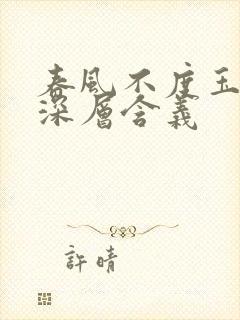 春風不度玉
深層含義
許晴